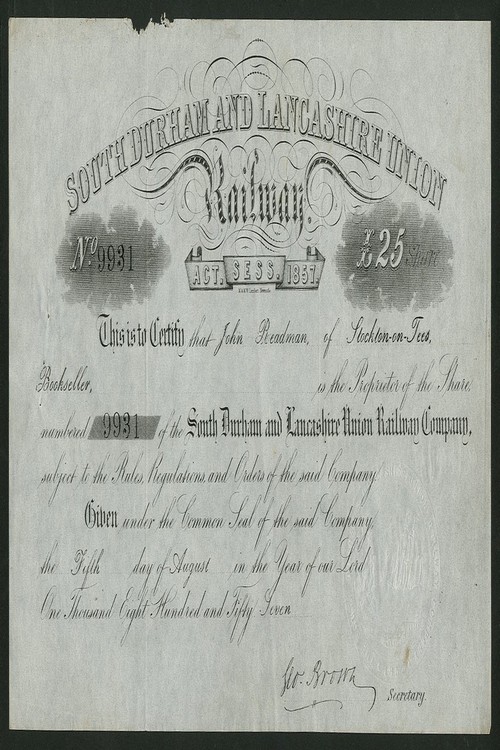 SOUTH DURHAM AND LANCASHIRE UNION
Railway.
No 9931
£25 Share
ACT. SESS. 1857.
This is to Certify that John Readman, of Stockton-on-Tees,
Bookseller, is the Proprietor of the Share,
numbered 9931 of the South Durham and Lancashire Union Railway Company,
subject to the Rules, Regulations, and Orders of the said Company.
Given under the Common Seal of the said Company,
the Fifth day of August in the Year of our Lord
One Thousand Eight Hundred and Fifty Seven
Geo. Brown
Secretary.